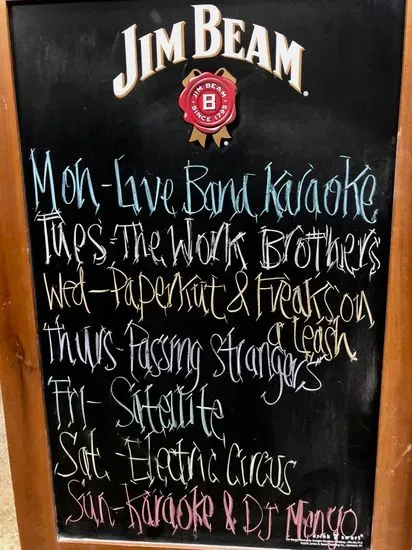 JIM BEAM
JIM BEAM
B
SINCE 1795
Mon-Live Band Karaoke
Tues-The Work Brothers
Wed-Paperkut & Freaks on
a Leash
Thurs-Passing Strangers
Fri-Satellite
Sat-Electric Circus
Sun-Karaoke & DJ Mengo
drink smart